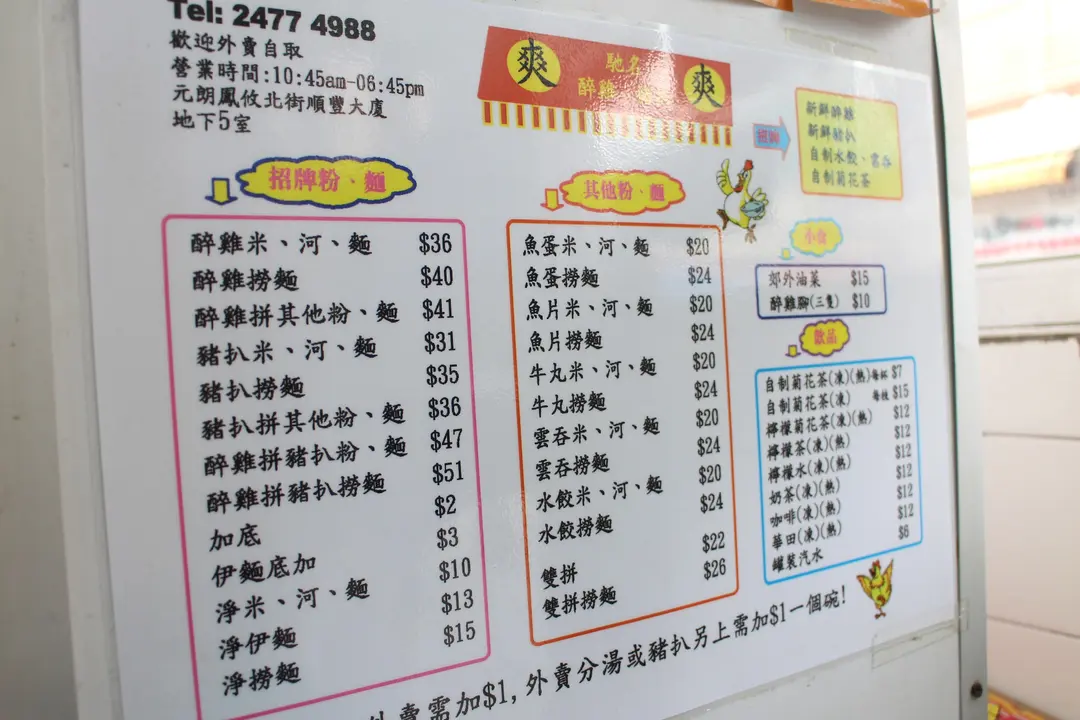 Tel: 2477 4988
歡迎外賣自取
營業時間:10:45am-06:45pm
元朗鳳攸北街順豐大廈
地下5室
爽 馳名 爽
醉雞
招牌
新鮮醉雞
新鮮豬扒
自制水餃、雲吞
自制菊花茶
招牌粉、麵
醉雞米、河、麵 $36
醉雞撈麵 $40
醉雞拼其他粉、麵 $41
豬扒米、河、麵 $31
豬扒撈麵 $35
豬扒拼其他粉、麵 $36
醉雞拼豬扒粉、麵 $47
醉雞拼豬扒撈麵 $51
加底 $2
伊麵底加 $3
淨米、河、麵 $10
淨伊麵 $13
淨撈麵 $15
其他粉、麵
魚蛋米、河、麵 $20
魚蛋撈麵 $24
魚片米、河、麵 $20
魚片撈麵 $24
牛丸米、河、麵 $20
牛丸撈麵 $24
雲吞米、河、麵 $20
雲吞撈麵 $24
水餃米、河、麵 $20
水餃撈麵 $24
雙拼 $22
雙拼撈麵 $26
小食
郊外油菜 $15
醉雞腳(三隻) $10
飲品
自制菊花茶(凍)(熱)每杯 $7
自制菊花茶(凍) 每枝 $15
檸檬菊花茶(凍)(熱) $12
檸檬茶(凍)(熱) $12
檸檬水(凍)(熱) $12
奶茶(凍)(熱) $12
咖啡(凍)(熱) $12
華田(凍)(熱) $12
罐裝汽水 $6
外賣需加$1,外賣分湯或豬扒另上需加$1一個碗!